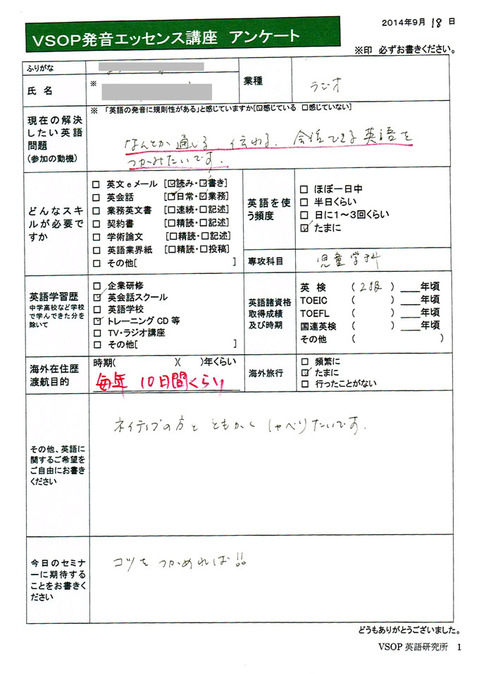 2014年9月 18 日
VSOP発音エッセンス講座 アンケート
※印 必ずお書きください。
ふりがな
氏 名
※
業種
ラジオ
現在の解決したい英語問題
(参加の動機)
※ 「英語の発音に規則性がある」と感じていますか[☑感じている □感じていない]
なんとか通じる、伝わる、会話できる英語を
つかみたいです。
どんなスキルが必要ですか
□ 英文 e メール [☑読み・☑書き]
□ 英会話 [☑日常・☑業務]
□ 業務英文書 [□速読・□記述]
□ 契約書 [□精読・□記述]
□ 学術論文 [□精読・□記述]
□ 英語業界紙 [□精読・□投稿]
□ その他[ ]
英語を使う頻度
□ ほぼ一日中
□ 半日くらい
□ 日に1~3回くらい
☑ たまに
専攻科目
児童学科
英語学習歴
中学高校など学校で学んできた分を除いて
□ 企業研修
☑ 英会話スクール
□ 英語学校
☑ トレーニング CD 等
□ TV・ラジオ講座
□ その他[ ]
英語諸資格取得成績及び時期
英 検 ( 2級 ) ___年頃
TOEIC ( ) ___年頃
TOEFL ( ) ___年頃
国連英検 ( ) ___年頃
その他 ( )
海外在住歴
渡航目的
時期( )( )年くらい
毎年 10日間くらい
海外旅行
□ 頻繁に
☑ たまに
□ 行ったことがない
その他、英語に関するご希望をご自由にお書きください
ネイティブの方と ともかく しゃべりたいです。
今日のセミナーに期待することをお書きください
コツを つかめれば!!
どうもありがとうございました。
VSOP 英語研究所 1